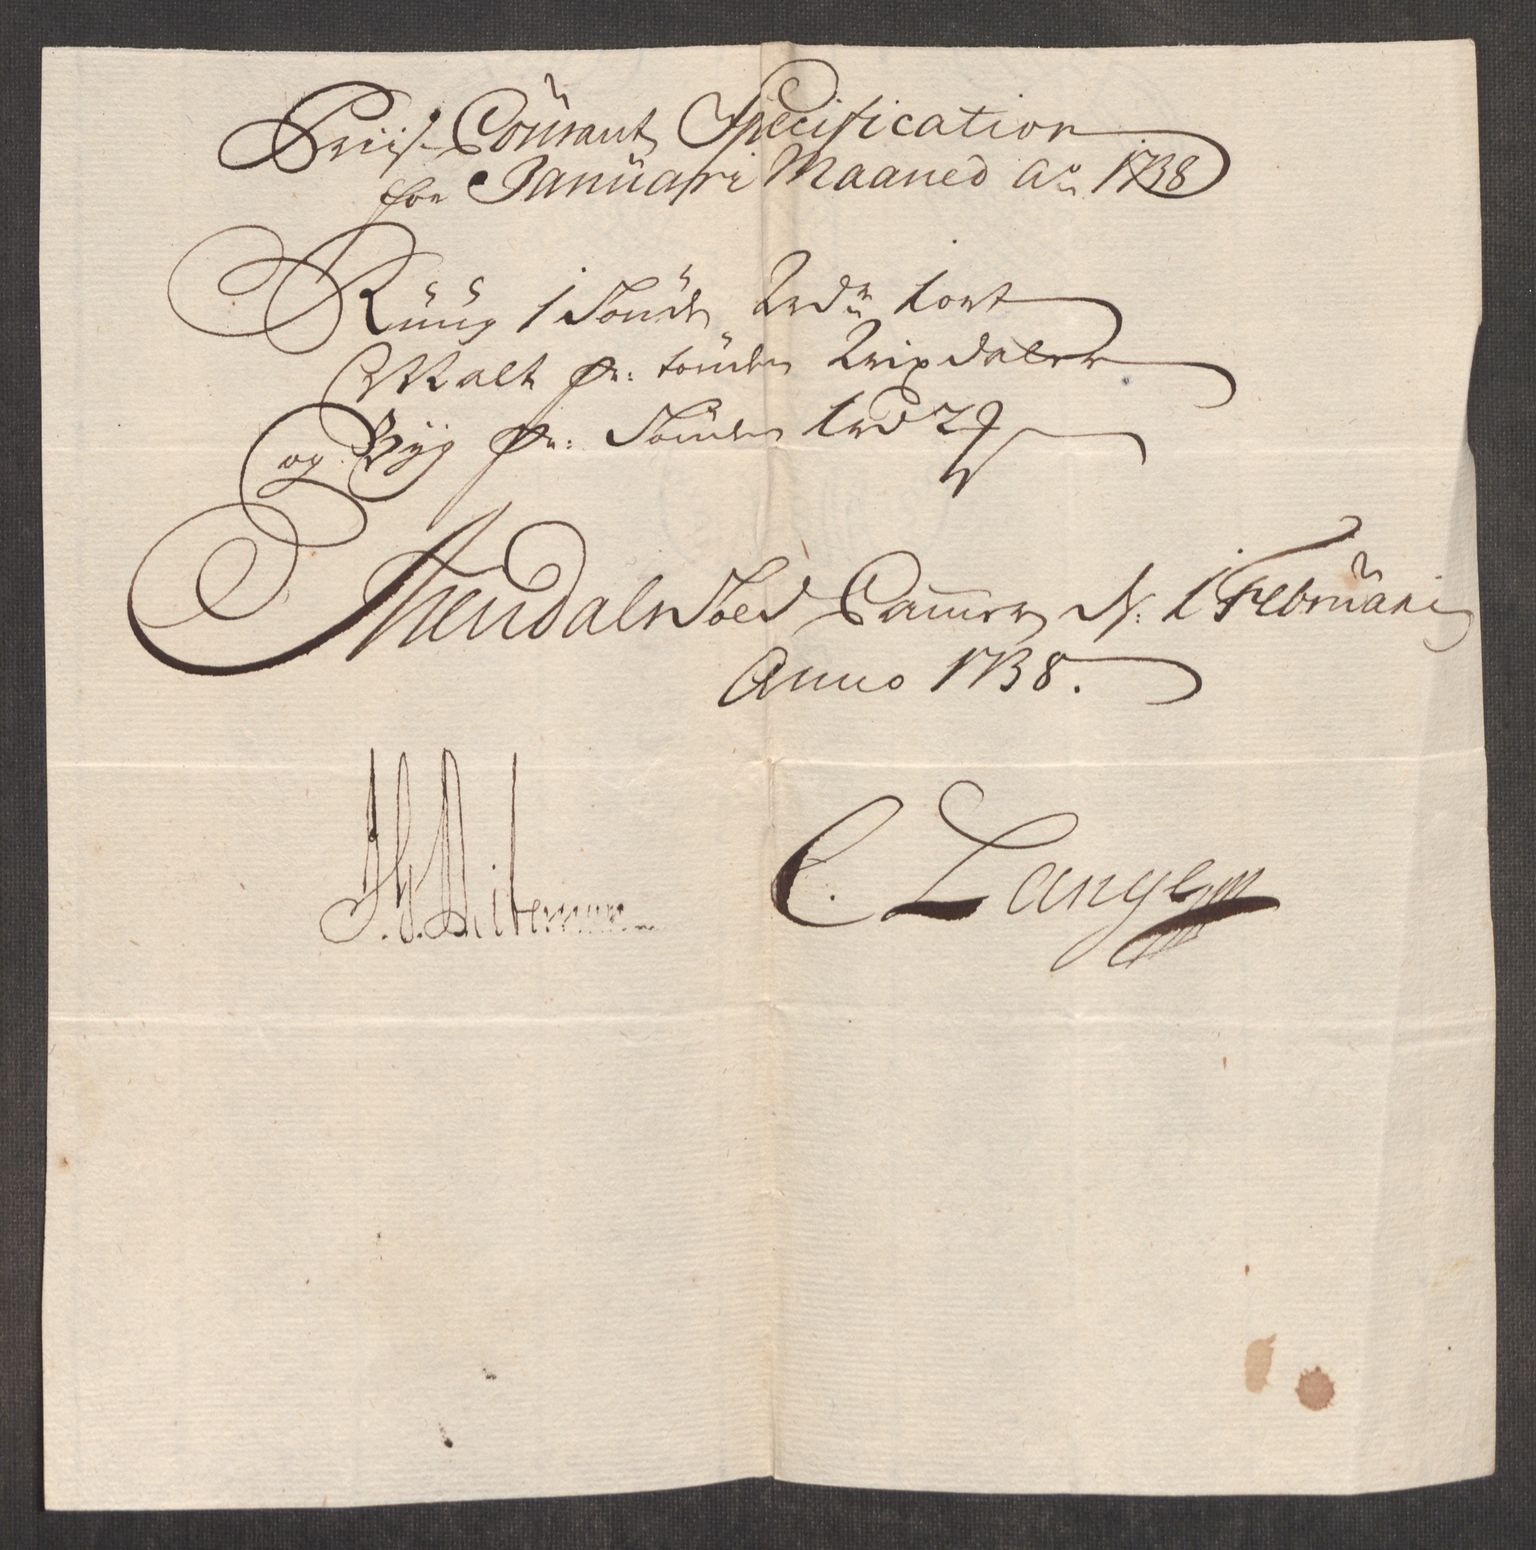 Priis Courant Specification
for Januari Maaned Ao 1738
Rüüg 1 Tønde 2rdr 1 ort
Malt pr: tønde 2 rixdaler
og Byg pr: Tønde 1rd 2
Arendals Toed Cammer d: 1 Februari
Anno 1738.
C. Lange